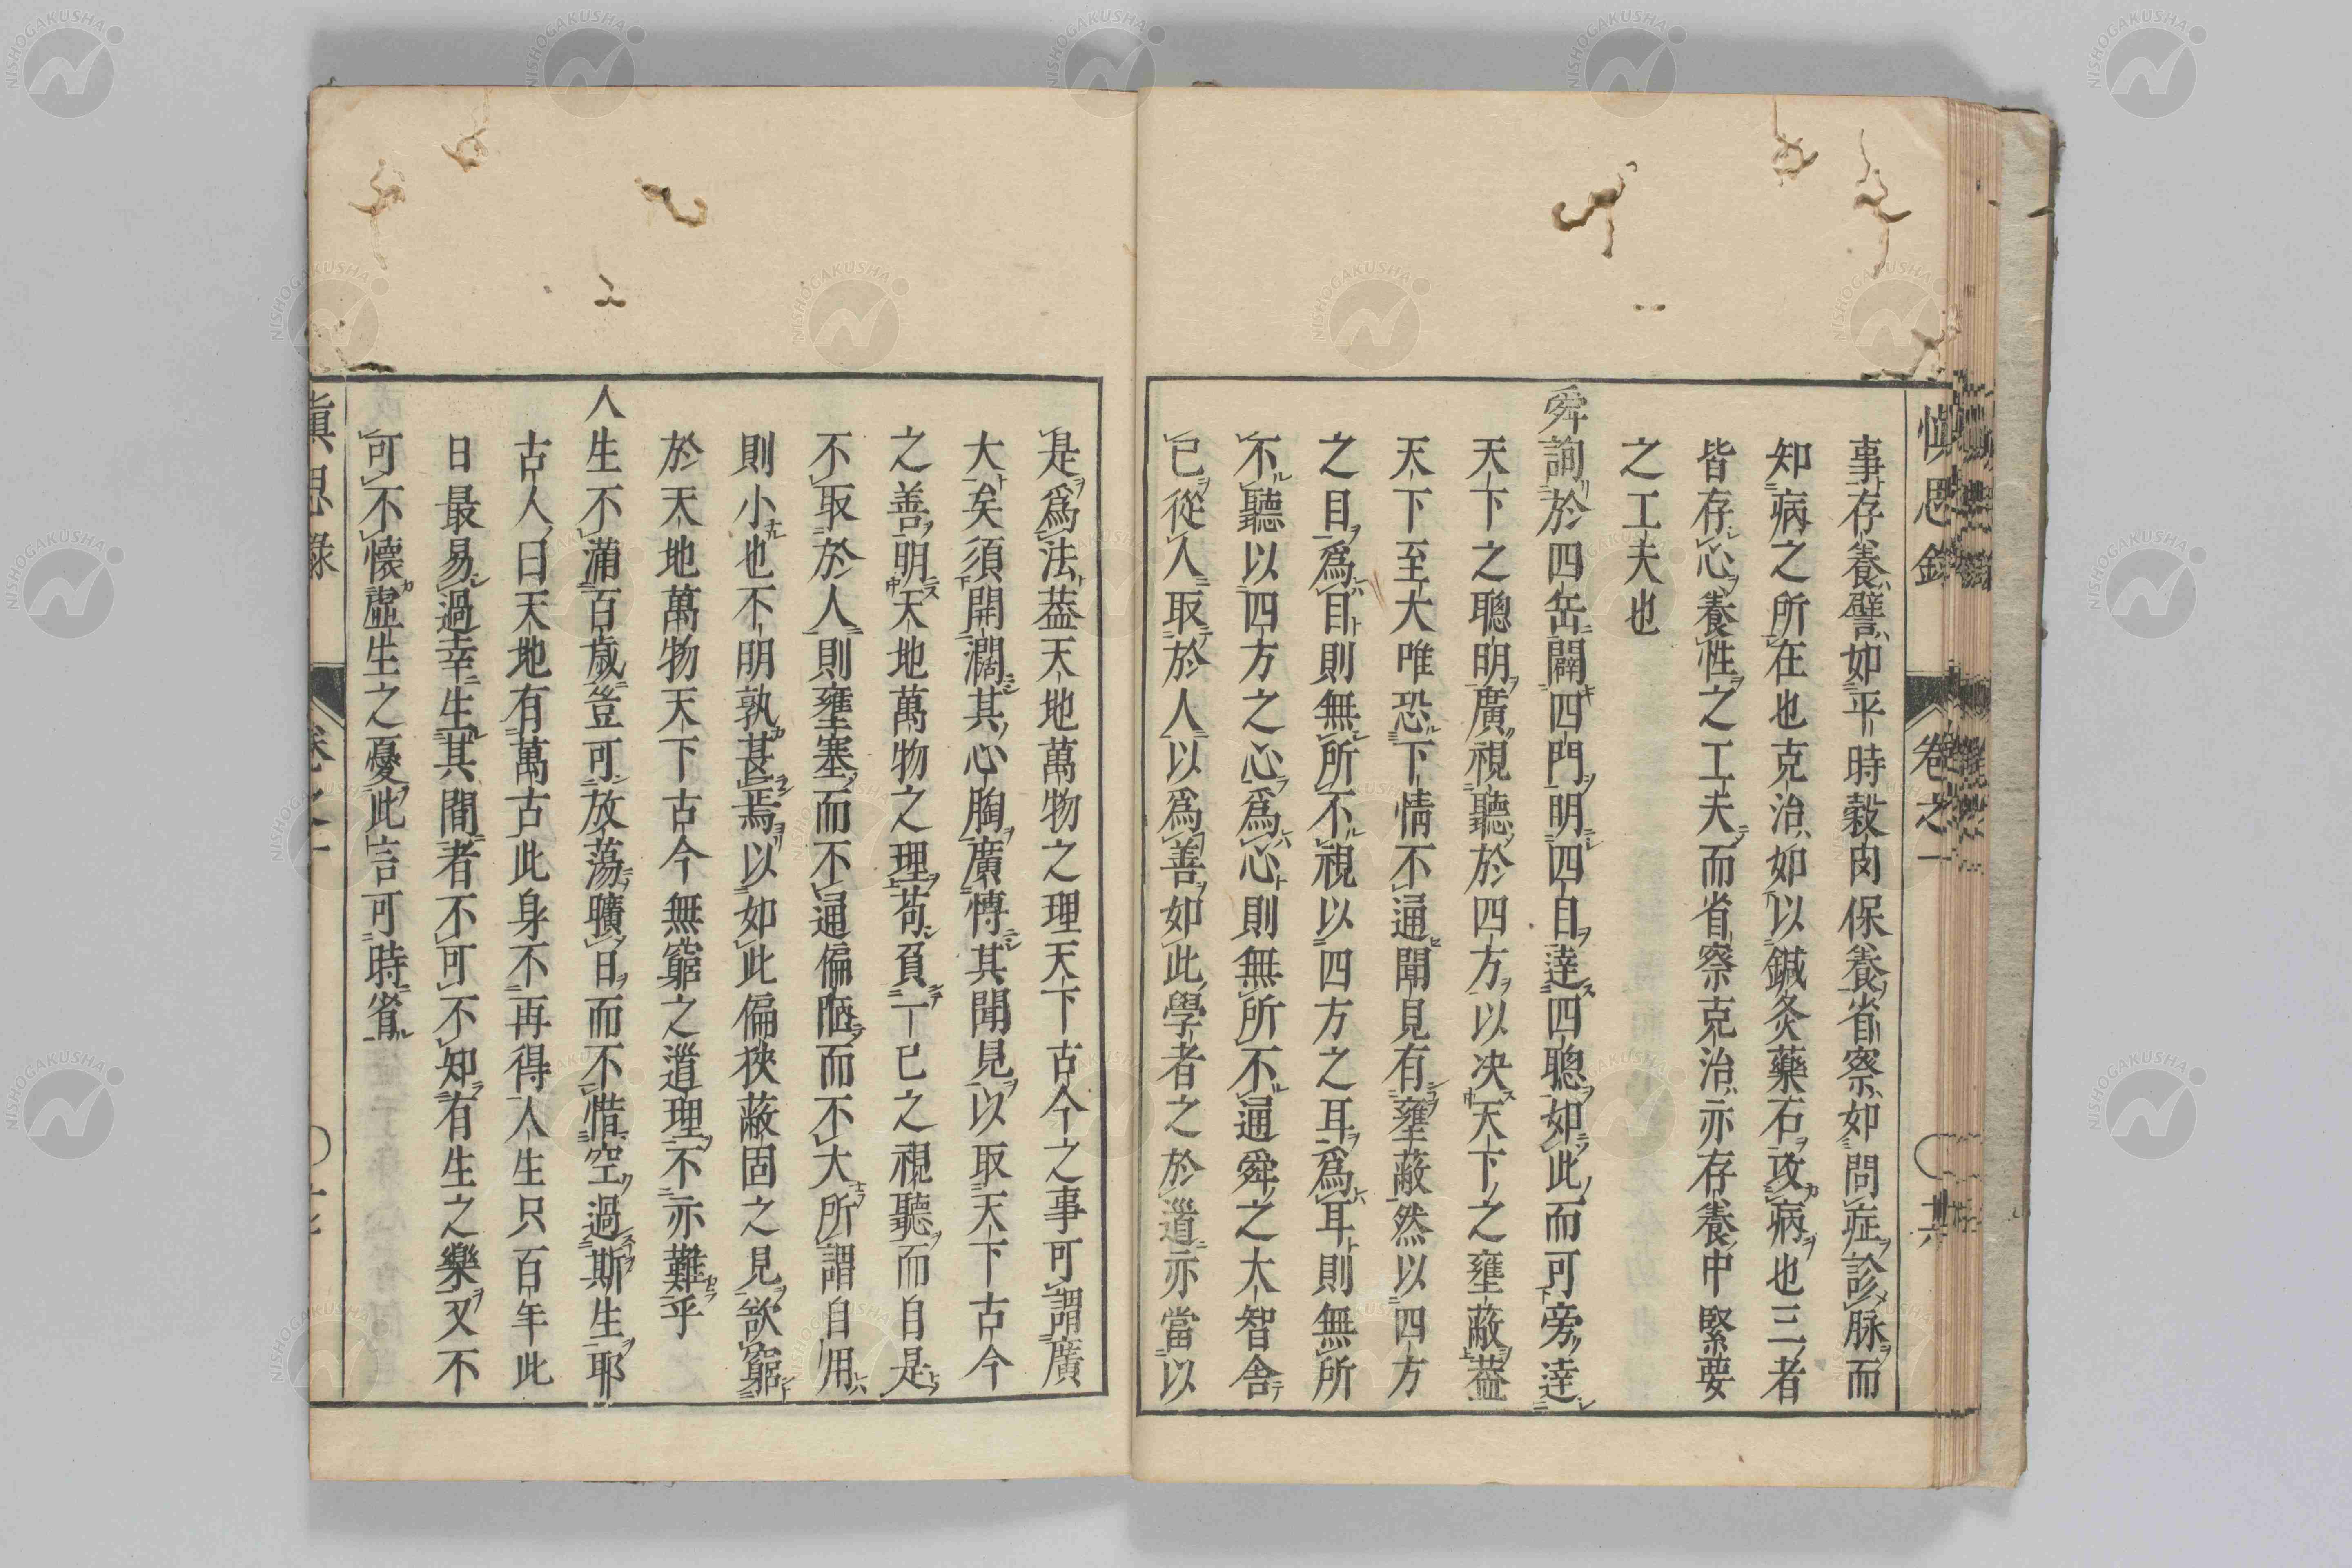 慎思録 卷之一 〇十六
事存養譬如平時穀肉保養省察如問症診脉而
知病之所在也克治如以鍼灸藥石攻病也三者
皆存心養性之工夫而省察克治亦存養中緊要
之工夫也
舜詢於四岳闢四門明四目達四聰如此而可旁達
天下之聰明廣視聽於四方以决天下之壅蔽蓋
天下至大唯恐下情不通聞見有壅蔽然以四方
之目爲目則無所不視以四方之耳爲耳則無所
不聽以四方之心爲心則無所不通舜之大智舍
已從人取於人以爲善如此學者之於道亦當以
是爲法蓋天地萬物之理天下古今之事可謂廣
大矣須開濶其心胸廣慱其聞見以取天下古今
之善明天地萬物之理苟負一已之視聽而自是
不取於人則壅塞而不通偏陋而不大所謂自用
則小也不明孰甚焉以如此偏狹蔽固之見欲窮
於天地萬物天下古今無窮之道理不亦難乎
人生不滿百歲豈可放蕩曠日而不惜空過斯生耶
古人曰天地有萬古此身不再得人生只百年此
日最易過幸生其間者不可不知有生之樂又不
可不懷虛生之憂此言可時省
慎思錄 卷之一
NISHOGAKUSHA